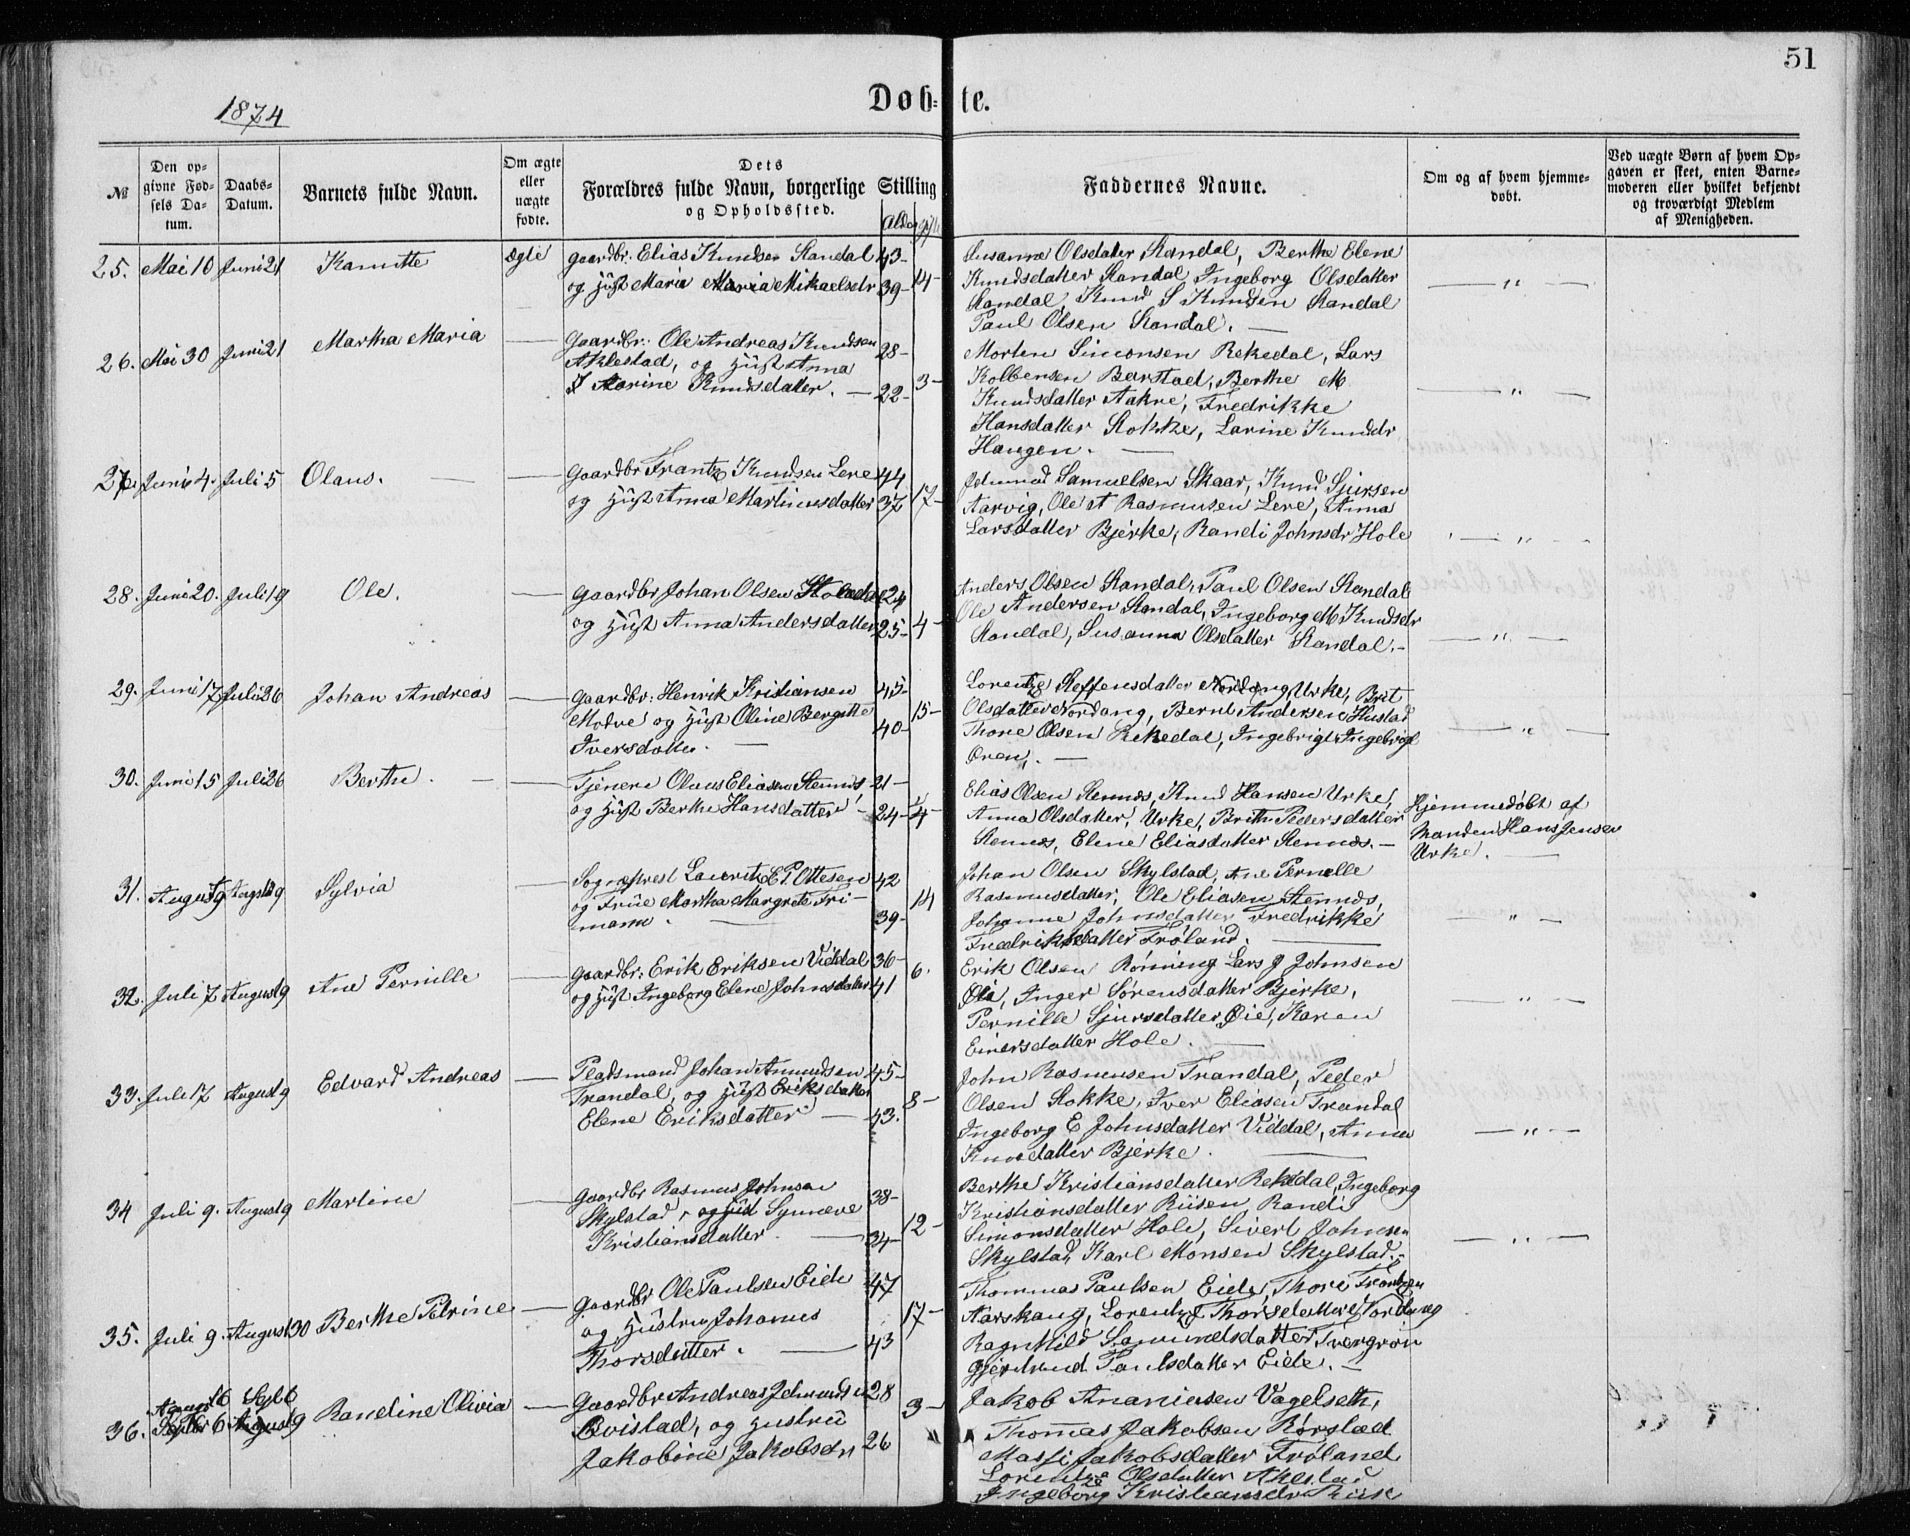 51
1874
Døb- te.
№
Den op-
givne Fød-
sels Da-
tum.
Daabs-
Datum.
Barnets fulde Navn.
Om ægte
eller
uægte
fødte.
Dets
Forældres fulde Navn, borgerlige Stilling
og Opholdssted.
Alder
Faddernes Navne.
Om og af hvem hjemme-
døbt.
Ved uægte Børn af hvem Op-
gaven er skeet, enten Barne-
moderen eller hvilket bekjendt
og troværdigt Medlem
af Menigheden.
25. Mai 10 Juni 21 Kanutte ægte
Gaardbr. Elias Knudsen Standal 43-
og Hust Maria Maria Mikaelsdr 39- 14-
Susanna Olsdatter Standal, Berthe Elene
Knudsdatter Standal Ingeborg Olsdatter
Standal, Knud S Knudsen Standal
Paul Olsen Standal. —
— " —
26. Mai 30 Juni 21 Martha Maria —
Gaardbr: Ole Andreas Knudsen 28-
Aklestad, og Hust Anna
Karine Knudsdatter. — 22- 3-
Morten Simonsen Rekedal, Lars
Kolbensen Barstad, Berthe M
Knudsdatter Aakre, Fredrikke
Hansdatter Stokke, Larine Knudsdr
Haugen. —
— " —
27. Juni 4. Juli 5 Olaus. —
Gaardbr Frantz Knudsen Lere 44
og Hust Anna Martinusdatter 37 17-
Johnmod Samuelsen Skaar, Knud Sjursen
Aarvig, Ole A Rasmusen Lere, Anna
Larsdatter Bjerke, Randi Johnsdr Hole
— " —
28. Juni 20. Juli 19 Ole. —
Gaardbr Johan Olsen Standal 24
og Hust Anna Andersdatter 25- 4-
Anders Olsen Standal, Paul Olsen Standal
Ole Andersen Standal, Ingeborg M Knudsdr
Standal, Susanna Olsdatter Standal.-
— " —
29. Juni 17 Juli 26 Johan Andreas —
Gaardbr: Henrik Kristiansen 45-
Modve og Hust Oline Bergitte 40- 15-
Iversdatter. —
Lorentze Steffensdatter Nordang Urke, Brit
Olsdatter Nordang, Bernt Andersen Hustad
Thore Olsen Rekedal, Ingebrigt Ingebrigt
Øren, —
— " —
30. Juni 15 Juli 26 Berthe. —
Tjenere Olaus Eliasen Stennes 21-
og Hust Berthe Hansdatter - 24- 1/4-
Elias Olsen Stennes, Knud Hansen Urke,
Anna Olsdatter, Urke, Brithe Pedersdatter
Stennes, Elene Eliasdatter Stennes. —
Hjemmedøbt af
Manden Hans Jensen
Urke. —
31. August 9 August 9 Sylvia —
Sogneprest Lauritz E P. Ottesen 42
og Frue Martha Margrete Fri- 14
mann. — 39-
Johan Olsen Skylstad, Ane Pernelle
Rasmusdatter, Ole Eliasen Stennes,
Johanne Johnsdatter Fredrikke
Fredriksdatter Frøland. —
— " —
32. Juli 7 August 9 Ane Pernille
Gaardbr: Erik Eriksen Viddal 36- 6.
og Hust Ingeborg Elene Johnsdatter 41
Erik Olsen Rønning Lars J Johnsen
Øie, Inger Sørensdatter Bjerke,
Pernille Sjursdatter Øie, Karen
Einersdatter Hole. —
— " —
33. Juli 17 August 9 Edvard Andreas —
Pladsmand Johan Amundsen 45-
Trandal, og Hust Eriksdatter 8-
Elene Eriksdatter — 43.
John Rasmusen Trandal, Peder
Olsen Stokke, Iver Eliasen Trandal
Ingeborg E Johnsdatter Viddal, Anna
Knudsdatter Bjerke. —
— " —
34 Juli 9. August 9 Martine —
Gaardbr Rasmus Johnsen 38-
Skylstad, og Hust Synneve 12-
Kristiansdatter. — 34-
Berthe Kristiansdatter Rekedal, Ingeborg
Kristiansdatter Riisen Randi
Simonsdatter Hole, Sivert Johnsen
Skylstad, Karl Monsen Skylstad. -
— " —
35. Juli 9. August 30 Berthe Petrine —
Gaardbr Ole Paulsen Eide 47
og Hustru Johanne 17-
Thorsdatter. — 43
Thommas Paulsen Eide, Thore Frantzen
Aarskaug, Lorentze J Thorsdatter Nordang
Ragnhild Samundsdatter Tvergrov
Gjertrud Paulsdatter Eide. —
36. August 6 Septb 6 August 9 Randine Olivia —
Gaardbr Andreas Johnmodsen 28
Qvistad, og Hustru 3-
Jakobine Jakobsdr 26
Jakob Ananiasen Vagelseth,
Thomas Jakobsen Rørstad
Massi Jakobsdatter Frøland
Lorentze Olsdatter Aklestad
Ingeborg Kristiansdr Riise